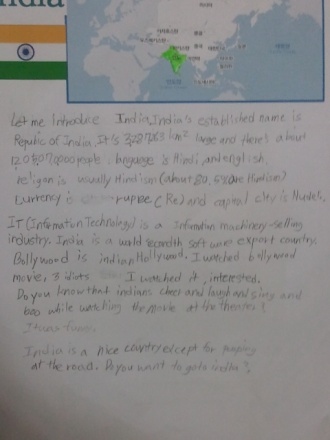 India
Let me introduce India, India's established name is
Republic of India. It's 3,287,263 km² large and there's about
people. language is Hindi, and english.
religion is usually Hinduism (about 80.5% are Hindism)
Currency is rupee (Re) and capital city is
IT (Information Technology) is a Information machinery-selling
industry. India is a world secondth software export country.
Bollywood is indian Hollywood. I watched bollywood
movie, 3 idiots I watched it, interested.
Do you know that indians cheer and laugh and sing and
boo while watching the movie at the theater?
It was funny.
India is a nice country except for pooping
at the road. Do you want to go to india?